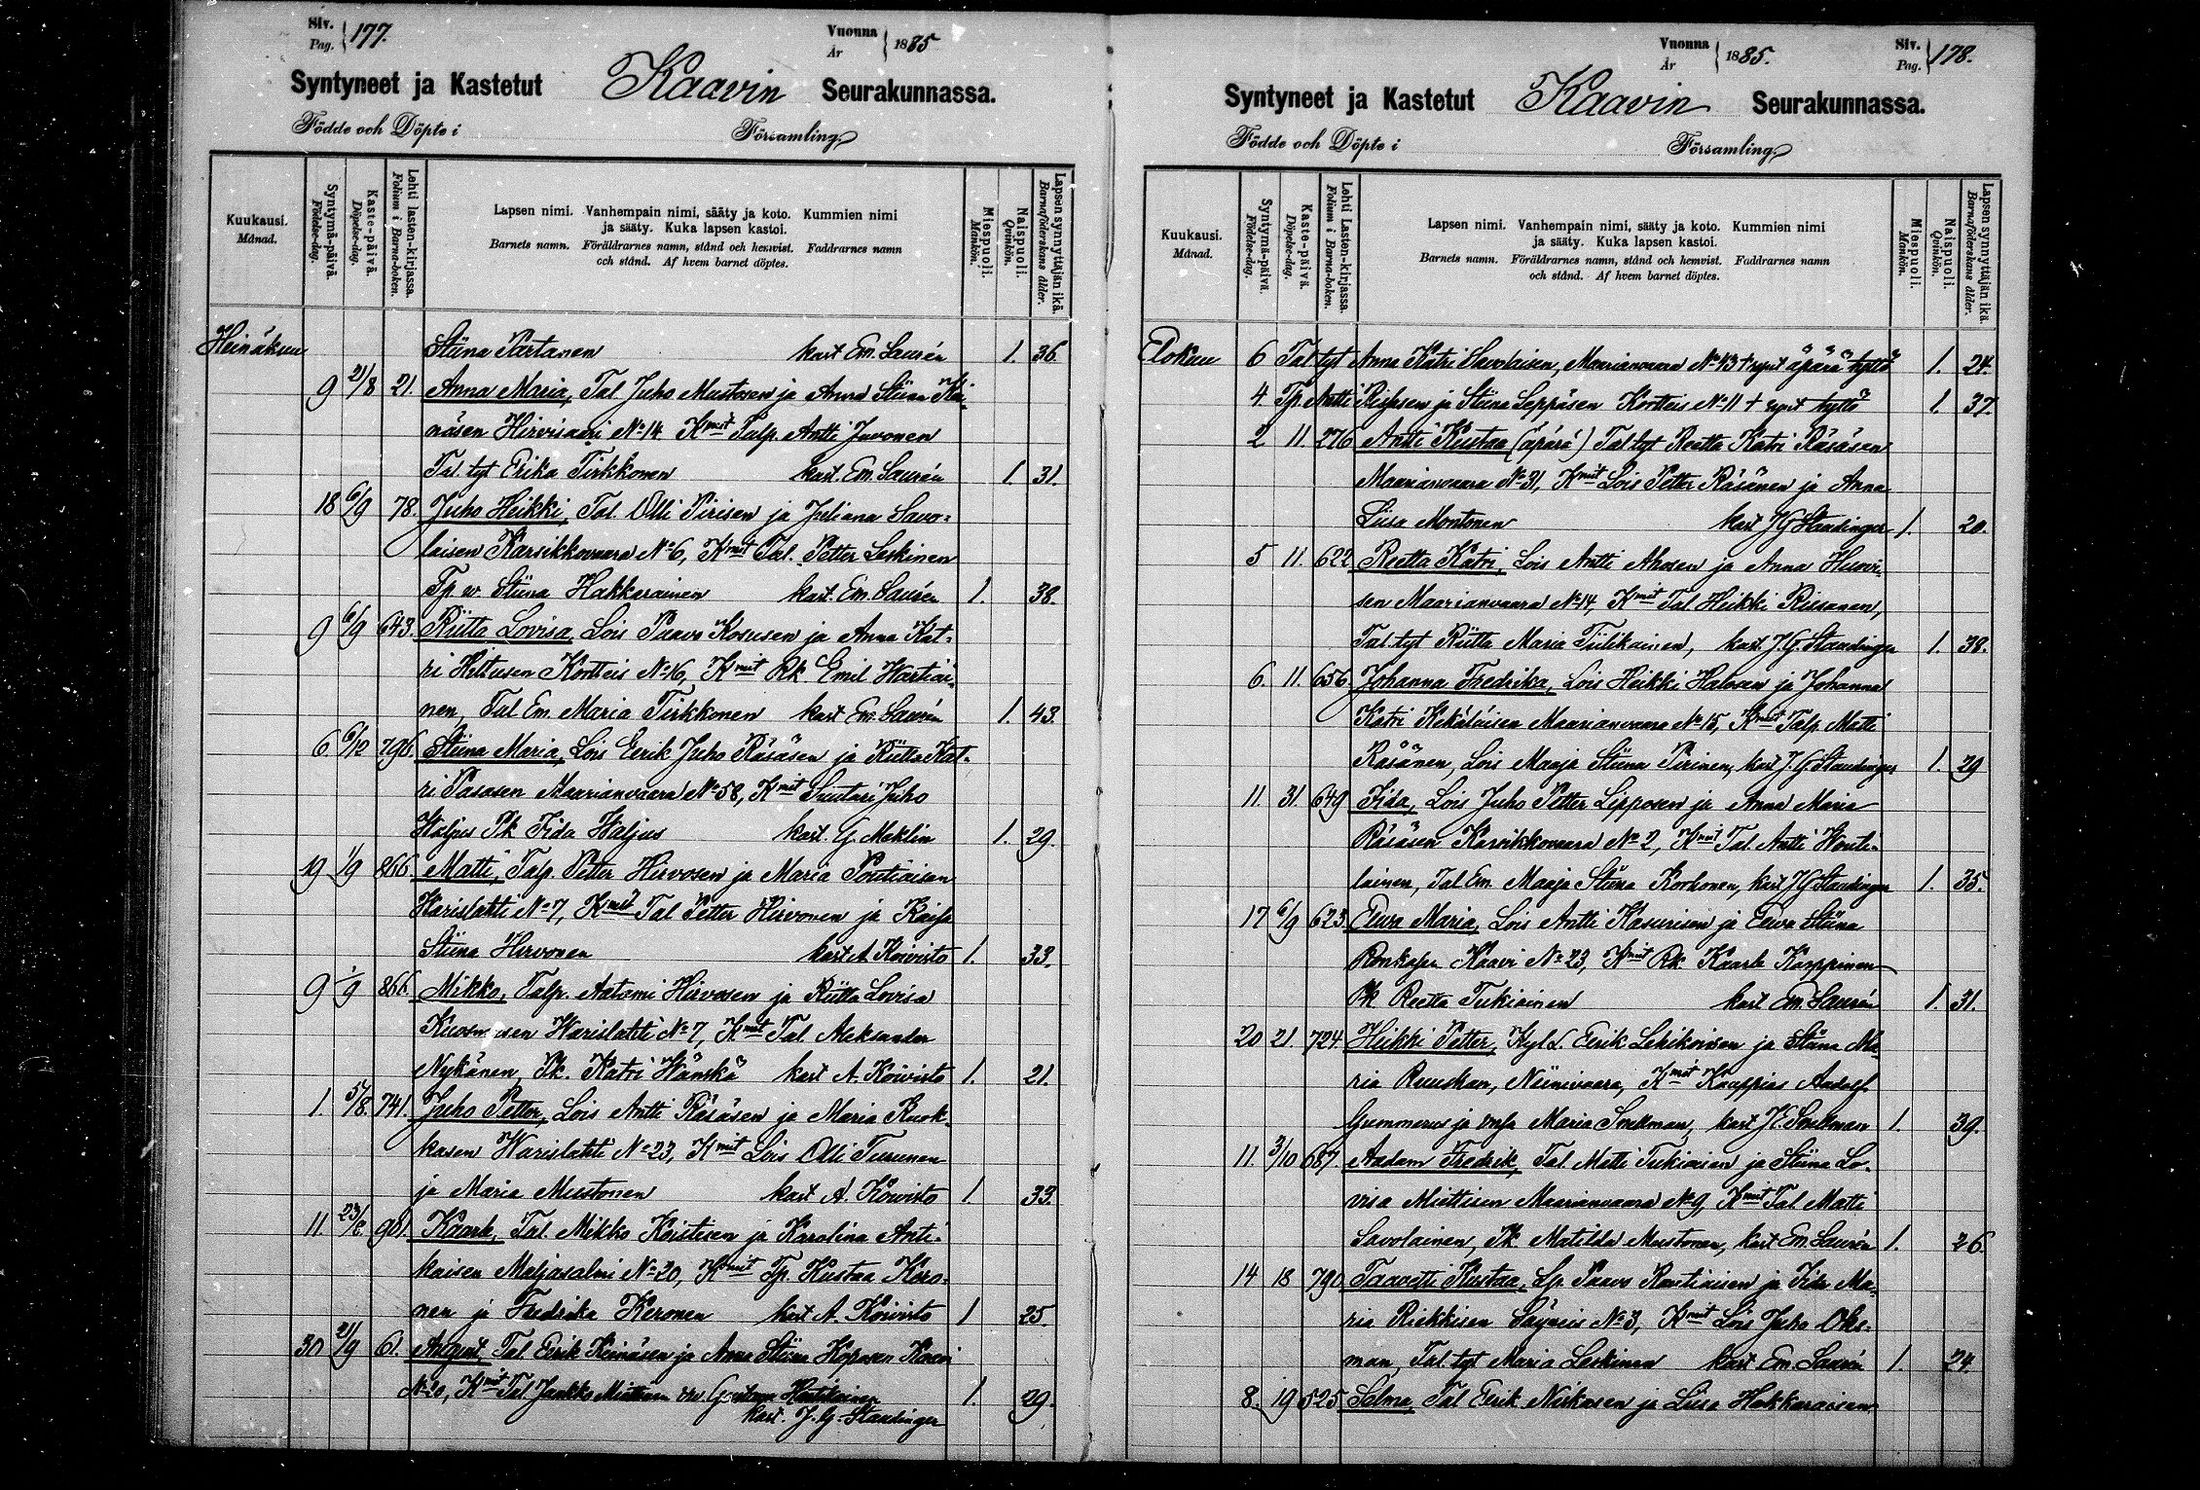 Siv. Pag. 177. Vuonna År 1885
Syntyneet ja Kastetut Kaavin Seurakunnassa.
Födde och Döpte i Församling
Kuukausi. Månad.
Syntymä-päivä. Födelse-dag.
Kaste-päivä. Döpelse-dag.
Lehti lasten-kirjassa. Folium i Barna-boken.
Lapsen nimi. Vanhempain nimi, sääty ja koto. Kummien nimi
ja sääty. Kuka lapsen kastoi.
Barnets namn. Föräldrarnes namn, stånd och hemvist. Faddrarnes namn
och stånd. Af hvem barnet döptes.
Miespuoli. Mankön.
Naispuoli. Qvinkön.
Lapsen synnyttäjän ikä. Barnaföderskans ålder.
Heinäkuu Stiina Partanen kast. Em. Saurén 1. 36.
9 21/8 21. Anna Maria, Tal. Juho Mustosen ja Anna Stiina Kai-
näsen Hirvisaari No 14 Kmit Talp. Antti Juvonen
Tal. tyt Erika Tirkkonen kast. Em. Saurén 1 31.
18 6/9 78. Juho Heikki, Tal. Olli Pirisen ja Juliana Savo-
laisen Karsikkovaara No 6, Kmit Tal. Petter Leskinen
Tp. v. Stiina Hakkarainen kast. Em. Saurén 1. 38.
9 6/9 643. Riitta Lovisa, Lois Paavo Kosusen ja Anna Kat-
ri Hiltusen Kortteis No 16, Kmit Rk Emil Hartiai-
nen, Tal. Em. Maria Tirkkonen kast Em. Saurén 1. 43.
6. 6/10 796. Stiina Maria, Lois Eerik Juho Räsäsen ja Riitta Kat-
ri Pasasen Maarianvaara No 58, Kmit Suutari Juho
Haljus Pk Fida Haljus kast. G Meklin 1. 29.
19 1/9 866 Matti, Talp. Petter Hirvosen ja Maria Poutiaisen
Warislahti No 7, Kmit Tal Petter Hirvonen ja Kaisa
Stiina Hirvonen kast A. Koivisto 1. 33.
9 1/9 866. Mikko, Talp. Aatami Hirvosen ja Riitta Lovisa
Kuosmasen Warislahti No 7, Kmit Tal. Aleksander
Nykänen, Pk. Katri Hänskä kast A. Koivisto 1. 21.
1 5/8. 741. Juho Petter, Lois Antti Räsäsen ja Maria Ruok-
kasen Warislahti No 23, Kmit Lois Olli Turunen
ja Maria Mustonen kast A. Koivisto 1 33.
11. 23/8 901. Kaarle, Tal. Mikko Koistisen ja Karolina Anti-
kaisen Maljasalmi No 20, Kmit Tp. Kustaa Kero-
nen ja Fredrika Keronen kast A. Koivisto 1 25.
30 21/9 61. August, Tal. Eerik Keinäsen ja Anna Stiina Koposen Kaavi
No 20, Kmit Tal Jaakko Miettinen 1. 29.
kast. J. G. Standinger
Vuonna År 1885. Siv. Pag. 178.
Syntyneet ja Kastetut Kaavin Seurakunnassa.
Födde och Döpte i Församling
Kuukausi. Månad.
Syntymä-päivä. Födelse-dag.
Kaste-päivä. Döpelse-dag.
Lehti Lasten-kirjassa. Folium i Barna-boken.
Lapsen nimi. Vanhempain nimi, sääty ja koto. Kummien nimi
ja sääty. Kuka lapsen kastoi.
Barnets namn. Föräldrarnes namn, stånd och hemvist. Faddrarnes namn
och stånd. Af hvem barnet döptes.
Miespuoli. Mankön.
Naispuoli. Qvinkön.
Lapsen synnyttäjän ikä. Barnaföderskans ålder.
Elokuu 6 Tal tyt Anna Katri Savolaisen, Maarianvaara No 43 + synt äpärä tyttö 1. 24.
4. Tp. Antti ja Stiina Seppäsen Kortteis No 11 + synt tyttö 1. 37.
2 11. 276 Antti Kustaa (äpärä) Tal. tyt Reetta Katri Räsäsen
Maarianvaara No 31, Kmit Lois Petter Räsänen ja Anna
Liisa Montonen kast J G Standinger 1. 20.
5 11. 622 Reetta Katri, Lois Antti Ahosen ja Anna Huovi-
sen Maarianvaara No 14, Kmit Tal. Heikki Rissanen,
Tal. tyt Riitta Maria Tiilikainen, kast. J. G. Standinger 1. 38.
6. 11. 656. Johanna Fredrika, Lois Heikki Halosen ja Johanna
Katri Kekäläisen Maarianvaara No 15, Kmit Talp. Matti
Räsänen, Lois Maaja Stiina Pirinen, kast J. G Standinger 1. 29
11. 31. 649 Fida, Lois Juho Petter Lipposen ja Anna Maria
Räsäsen Karsikkovaara No 2, Kmit Tal. Antti Wouti-
lainen, Tal. Em. Maaja Stiina Korhonen, kast J G Standinger 1. 35.
17 6/9 623. Eeva Maria, Lois Antti Kasurisen ja Eeva Stiina
Ronkasen Kaavi No 23, Kmit Rk. Kaarle Karppinen
Pk Reetta Tukiainen kast Em. Saurén 1. 31.
20 21. 724 Heikki Petter, Kyl. L. Eerik Lehikoisen ja Stiina Ma-
ria Ruuskan, Niinivaara, Kmit Kauppias Aadolf
Gummerus ja vmsa Maria Snellman, kast J. E. Snellman 1. 39.
11. 3/10 687. Aadam Fredrik, Tal. Matti Tukiaisen ja Stiina Lo-
visa Miettisen Maarianvaara No 9, Kmit Tal. Matti
Savolainen, Pk. Matilda Mustonen, kast Em. Saurén 1. 26.
14 18 790 Taavetti Kustaa, Lp. Paavo Rautiaisen ja Fida Ma-
ria Riekkisen Säyneis No 3, Kmit Lois Juho Oks-
man, Tal. tyt Maria Leskinen kast Em. Saurén 1. 24.
8. 19 525 Selma, Tal Eerik Niskasen ja Liisa Hakkaraisen